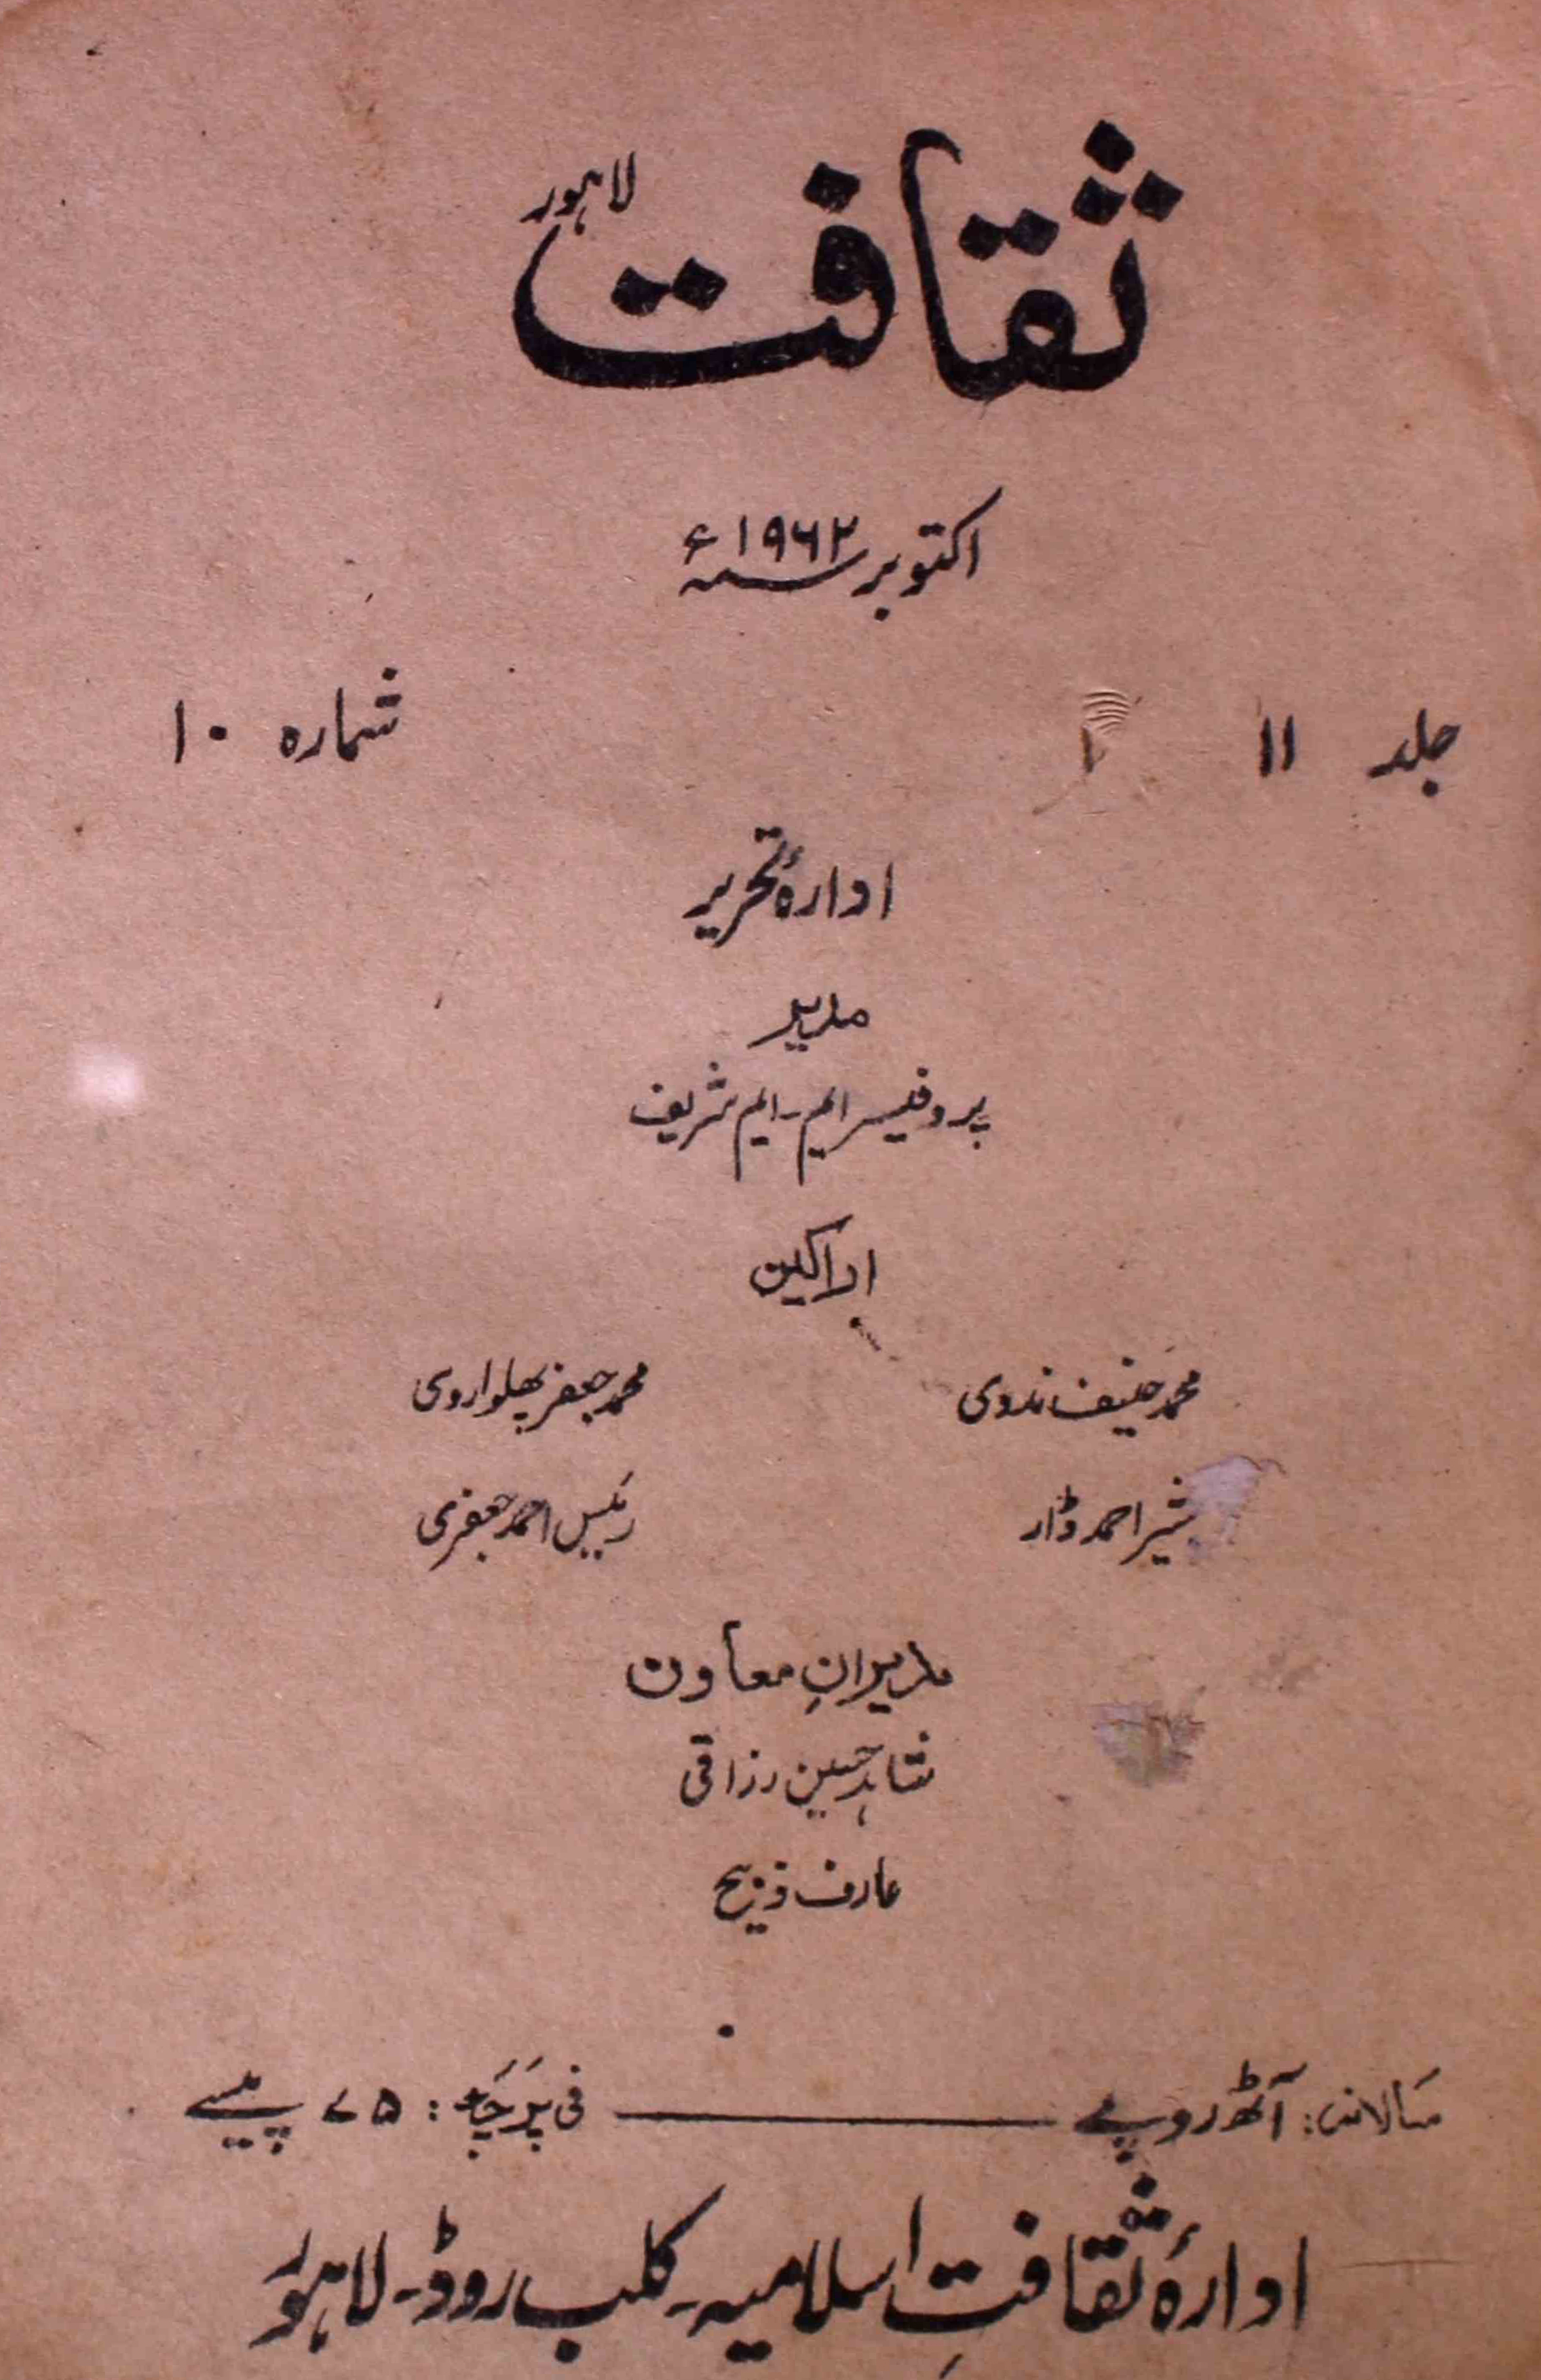 ثقافت لاہور
اکتوبر ۱۹۶۲ء
جلد ۱۱ شمارہ ۱۰
ادارۂ تحریر
مدیر
پروفیسر ایم۔ایم شریف
اراکین
محمد حنیف ندوی محمد جعفر پھلواروی
بشیر احمد ڈار رئیس احمد جعفری
مدیرانِ معاون
شاہد حسین رزاقی
عارف ذبیح
سالانہ: آٹھ روپے فی پرچہ: ۷۵ پیسے
ادارۂ ثقافتِ اسلامیہ۔کلب روڈ۔لاہور